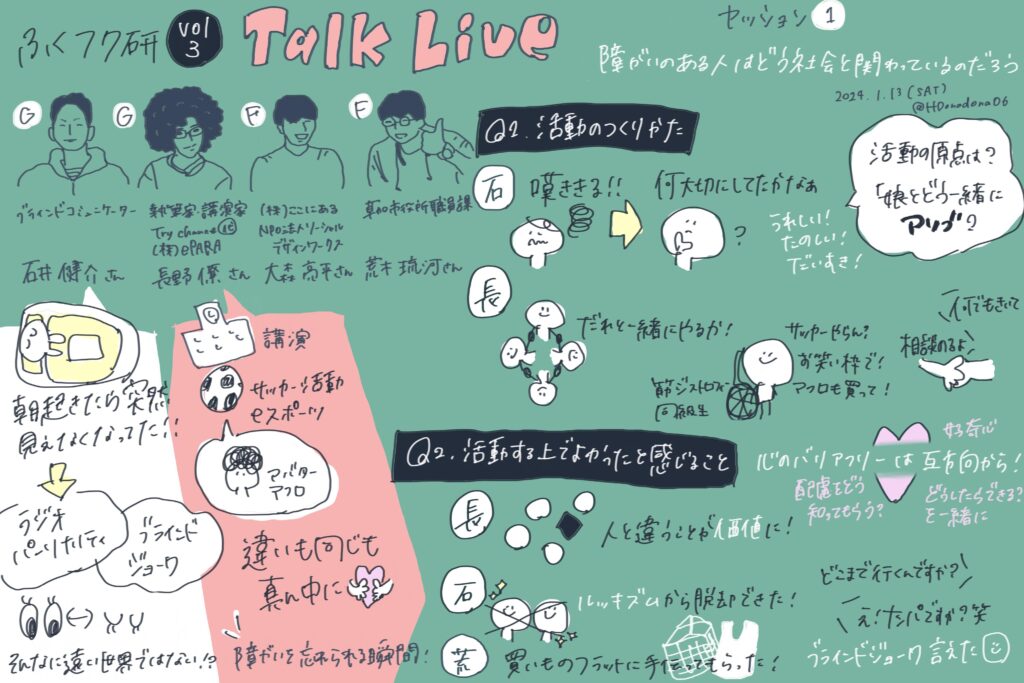 ふくフク研
vol
3
Talk Live
セッション 1
障がいのある人はどう社会と関わっているのだろう
2024.1.13 (SAT)
@HDonadona06
G
G
F
F
ブラインドコミュニケーター
石井 健介 さん
執筆家・講演家
Try chance
(株)ePARA
長野 僚 さん
(株)ここにある
NPO法人ソーシャル
デザインワークス
大森 亮平さん
草加市役所職員課
荒木 琉河さん
Q1. 活動のつくりかた
石
嘆ききる!!
何大切にしてたかなぁ
?
うれしい!
たのしい!
だいすき!
活動の原点は?
「娘とどう一緒に
アソブ?
長
だれと一緒にやるか!
筋ジストロフィー
同級生
サッカーやらん?
お笑い枠で!
アフロも買って!
何でもきいて
相談のるよ!
朝起きたら突然
見えなくなってた!!
ラジオ
パーソナリティ
ブラインド
ジョーク
そんなに遠い世界ではない!?
講演
サッカー活動
eスポーツ
アバター
アフロ
違いも同じも
真ん中に
障がいを忘れられる瞬間!
Q2. 活動する上でよかったと感じること
長
人と違うことが価値に!
石
ルッキズムから脱却できた!
荒
買いものフラットに手伝ってもらった!
好奇心
心のバリアフリーは 互方向から!
配慮をどう
知ってもらう?
どうしたらできる?
を一緒に
どこまで行くんですか?
え!ナンパですか?笑
ブラインドジョーク 言えた